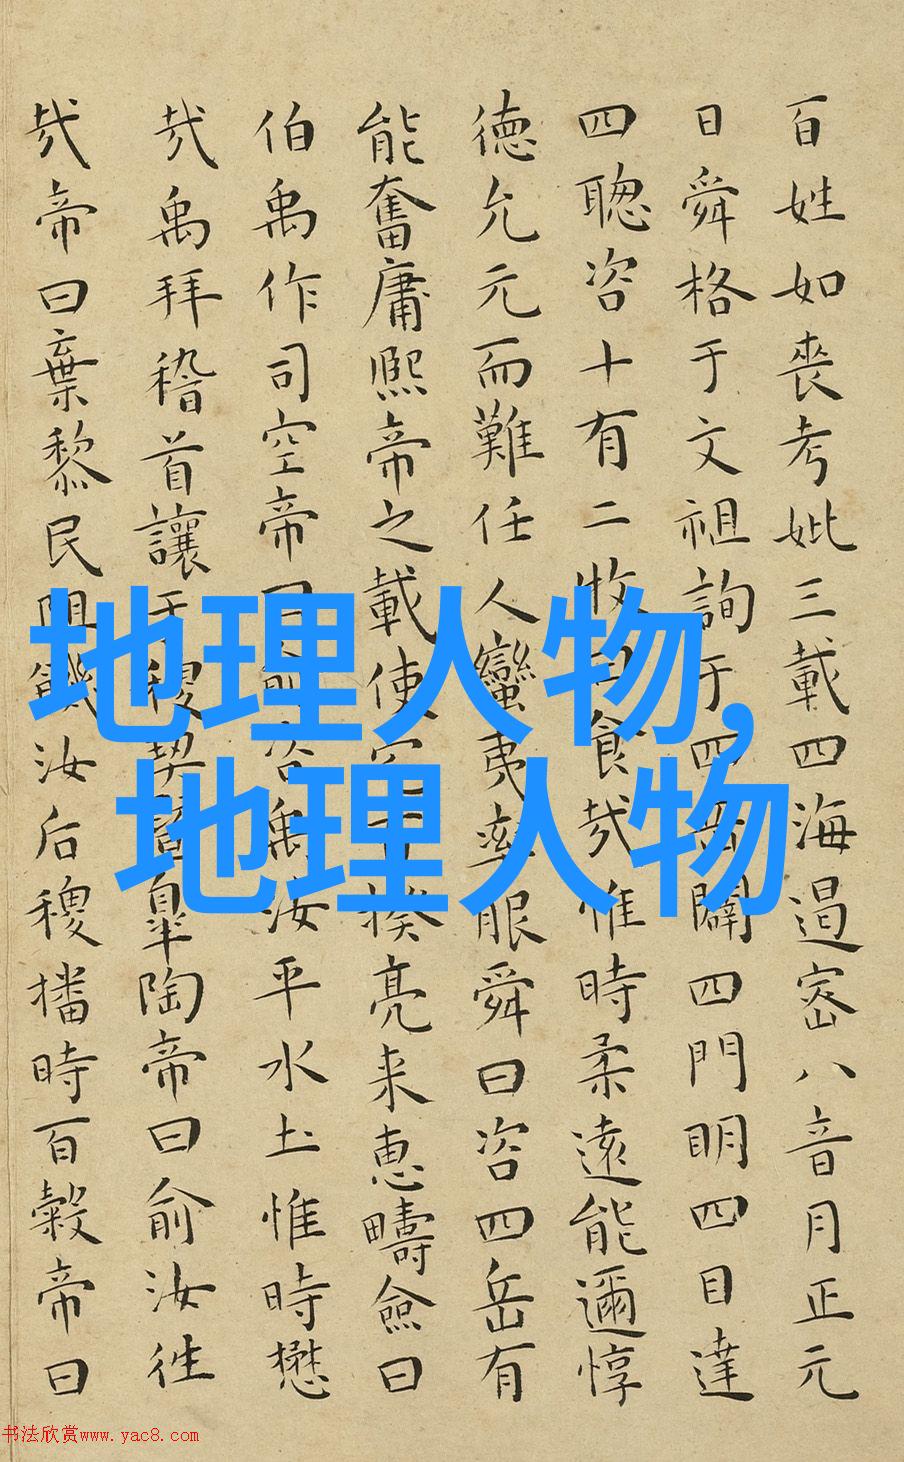 百姓如喪考妣三載四海遏密八音月正元
日舜格于文祖詢于四岳闢四門明四目達
四聰咨十有二牧曰食哉惟時柔遠能邇惇
德允元而難任人蠻夷率服舜曰咨四岳有
能奮庸熙帝之載使宅百揆亮来惠疇僉曰
伯禹作司空帝曰俞咨禹汝平水土惟時懋
哉禹拜稽首讓于稷契暨皋陶帝曰俞汝往
哉帝曰棄黎民阻飢汝后稷播時百穀帝曰
地理人物,
地理人物
书法欣赏www.yac8.com